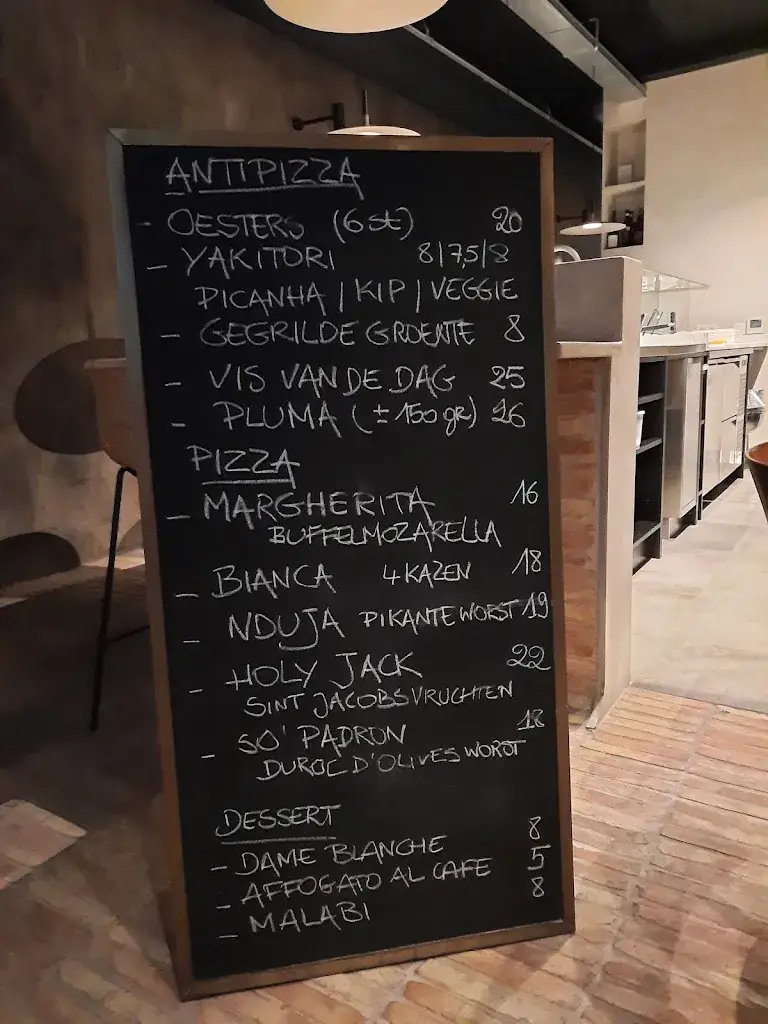 ANTIPIZZA
- OESTERS (6 st) 20
- YAKITORI 8|7,5|8
PICANHA | KIP | VEGGIE
- GEGRILDE GROENTE 8
- VIS VAN DE DAG 25
- PLUMA (± 150 gr) 26
PIZZA
- MARGHERITA 16
BUFFELMOZARELLA
- BIANCA 4 KAZEN 18
- NDUJA PIKANTE WORST 19
- HOLY JACK 22
SINT JACOBSVRUCHTEN
- SO' PADRON 18
DUROC D'OLIVES WORST
DESSERT
- DAME BLANCHE 8
- AFFOGATO AL CAFE 5
- MALABI 8